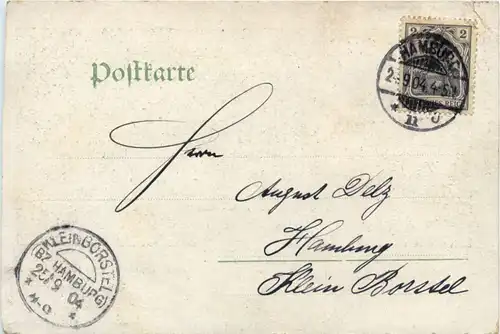 2 2
HAMBURG
9 04 4-5
* 11
Postkarte
Herrn
August Delz
Hamburg
Klein Borstel
KLEINBORSTEL
(BZ. HAMBURG)
25/9 04
* *